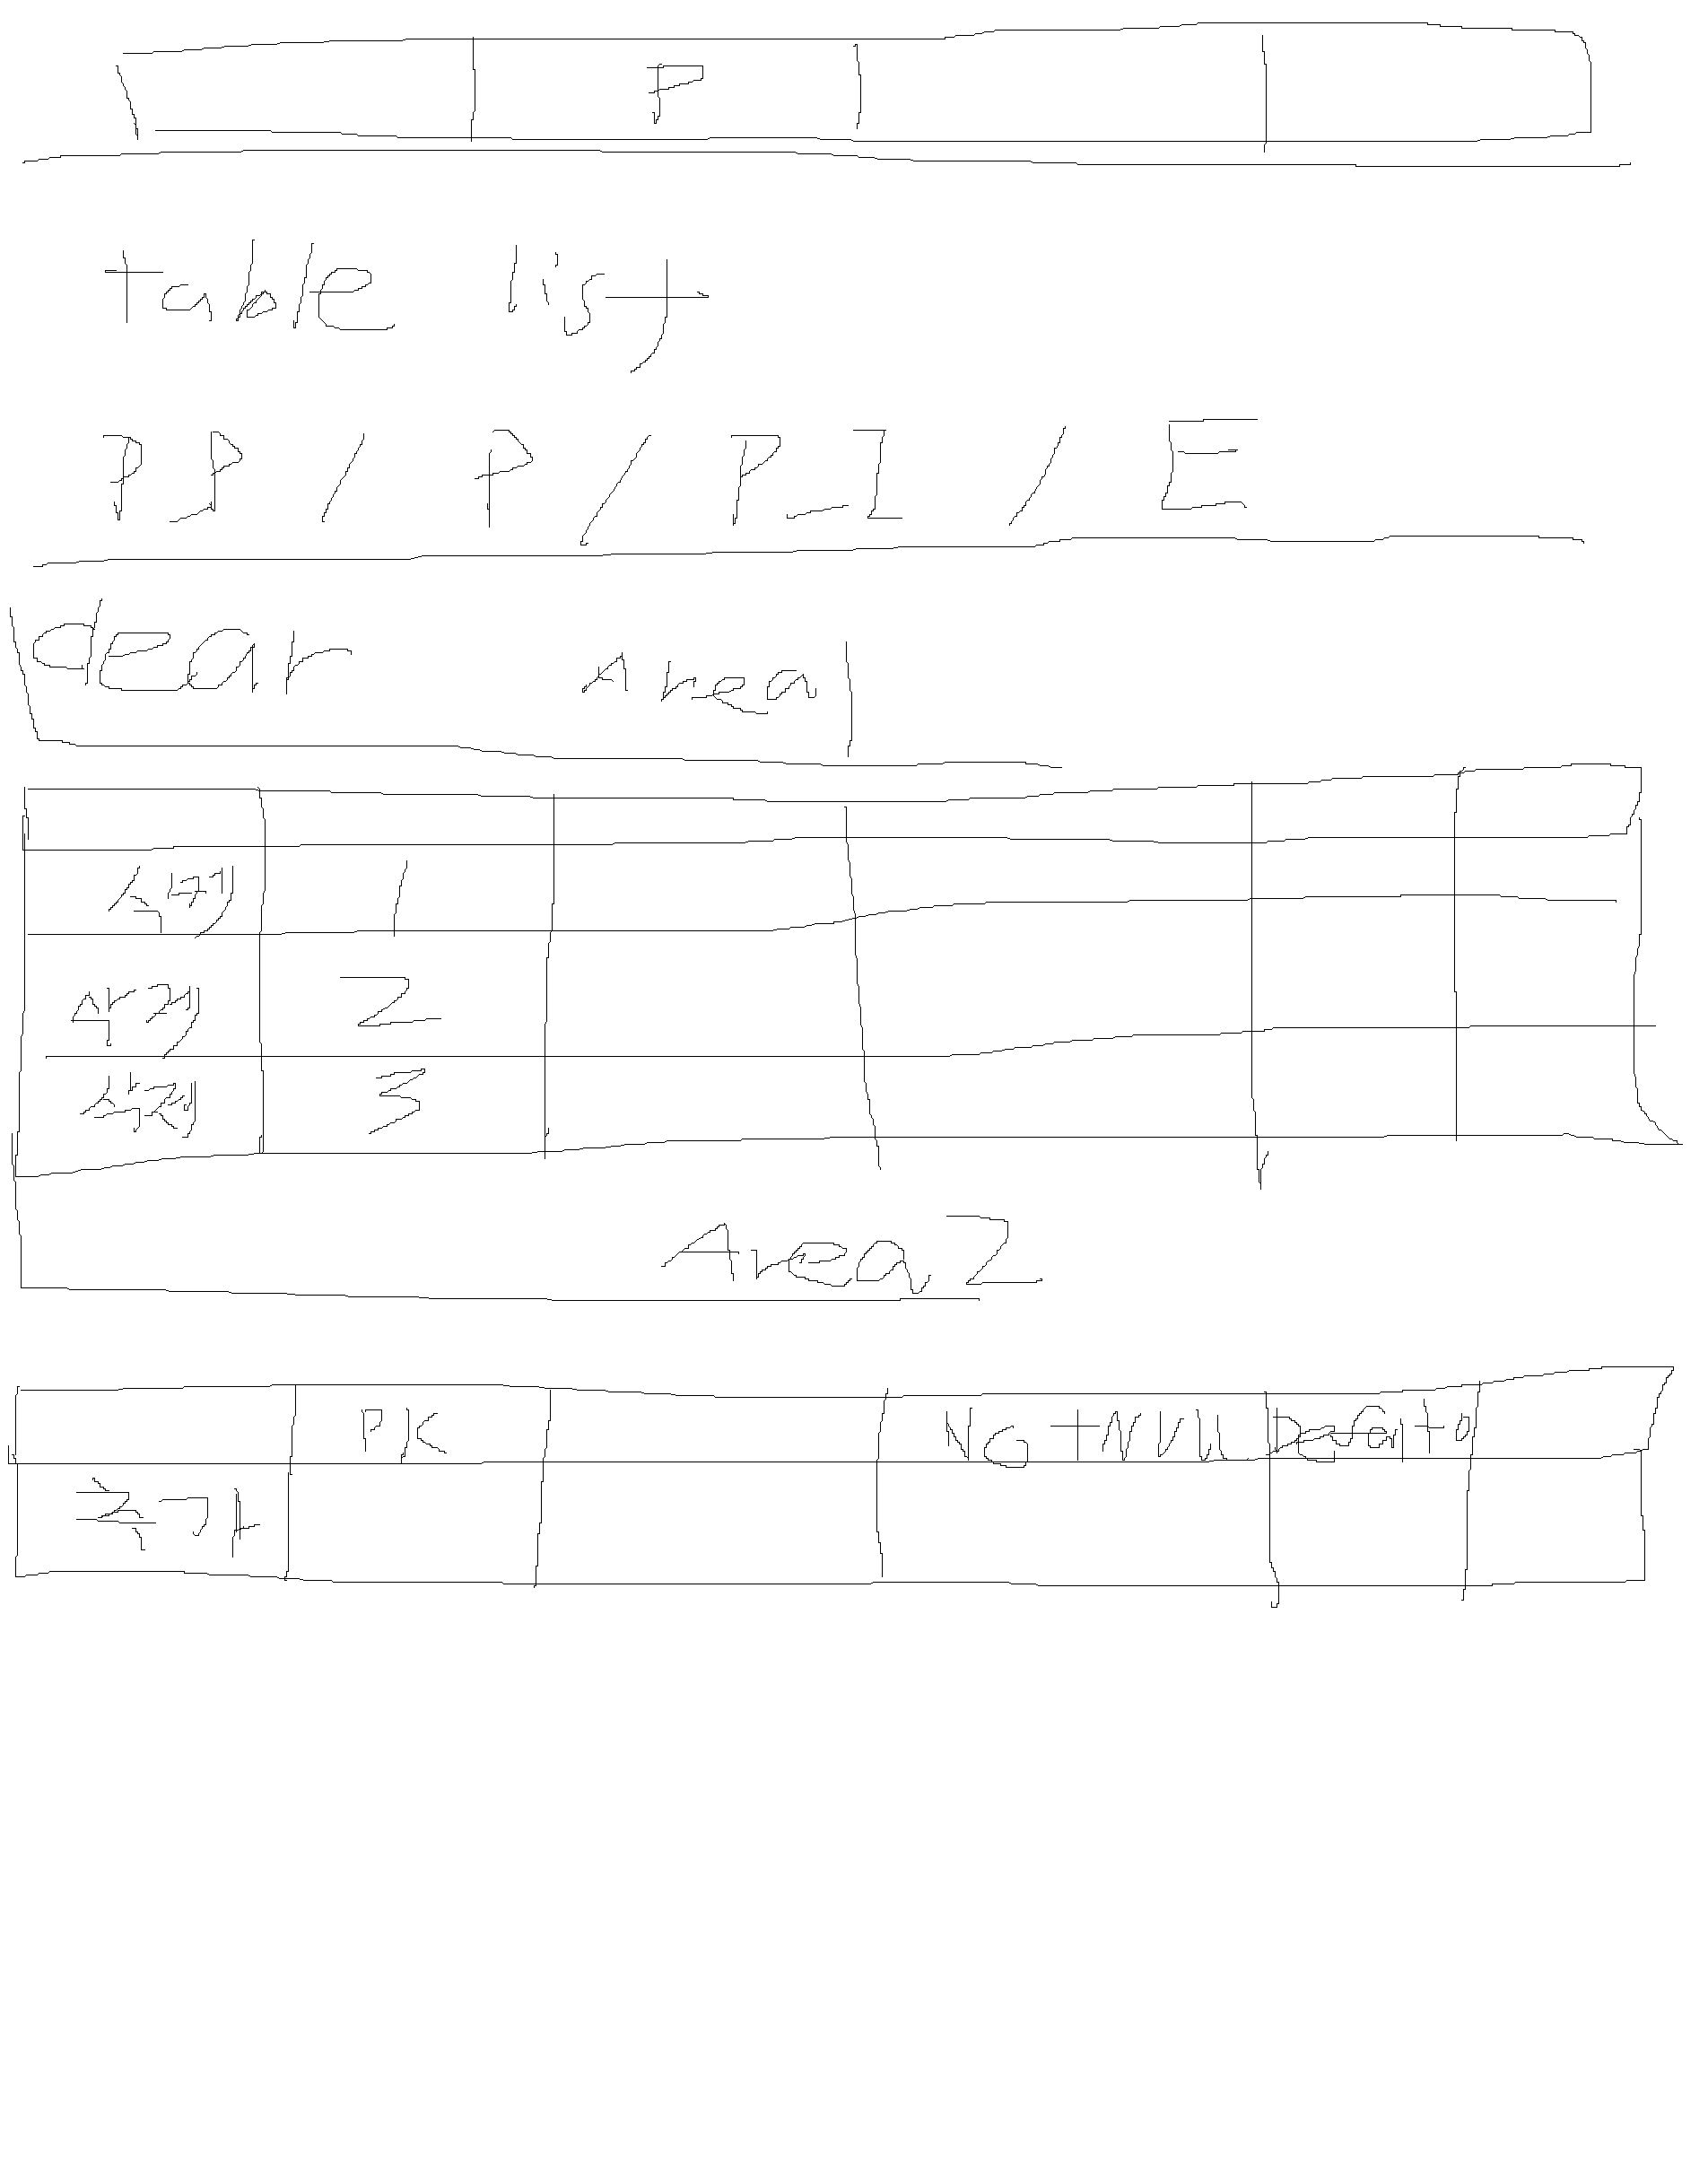 P
table list
PP / P / P_I / E
dear Area
삭제 1
삭제 2
삭제 3
Area 2
PK Not NULL Default 0
추가